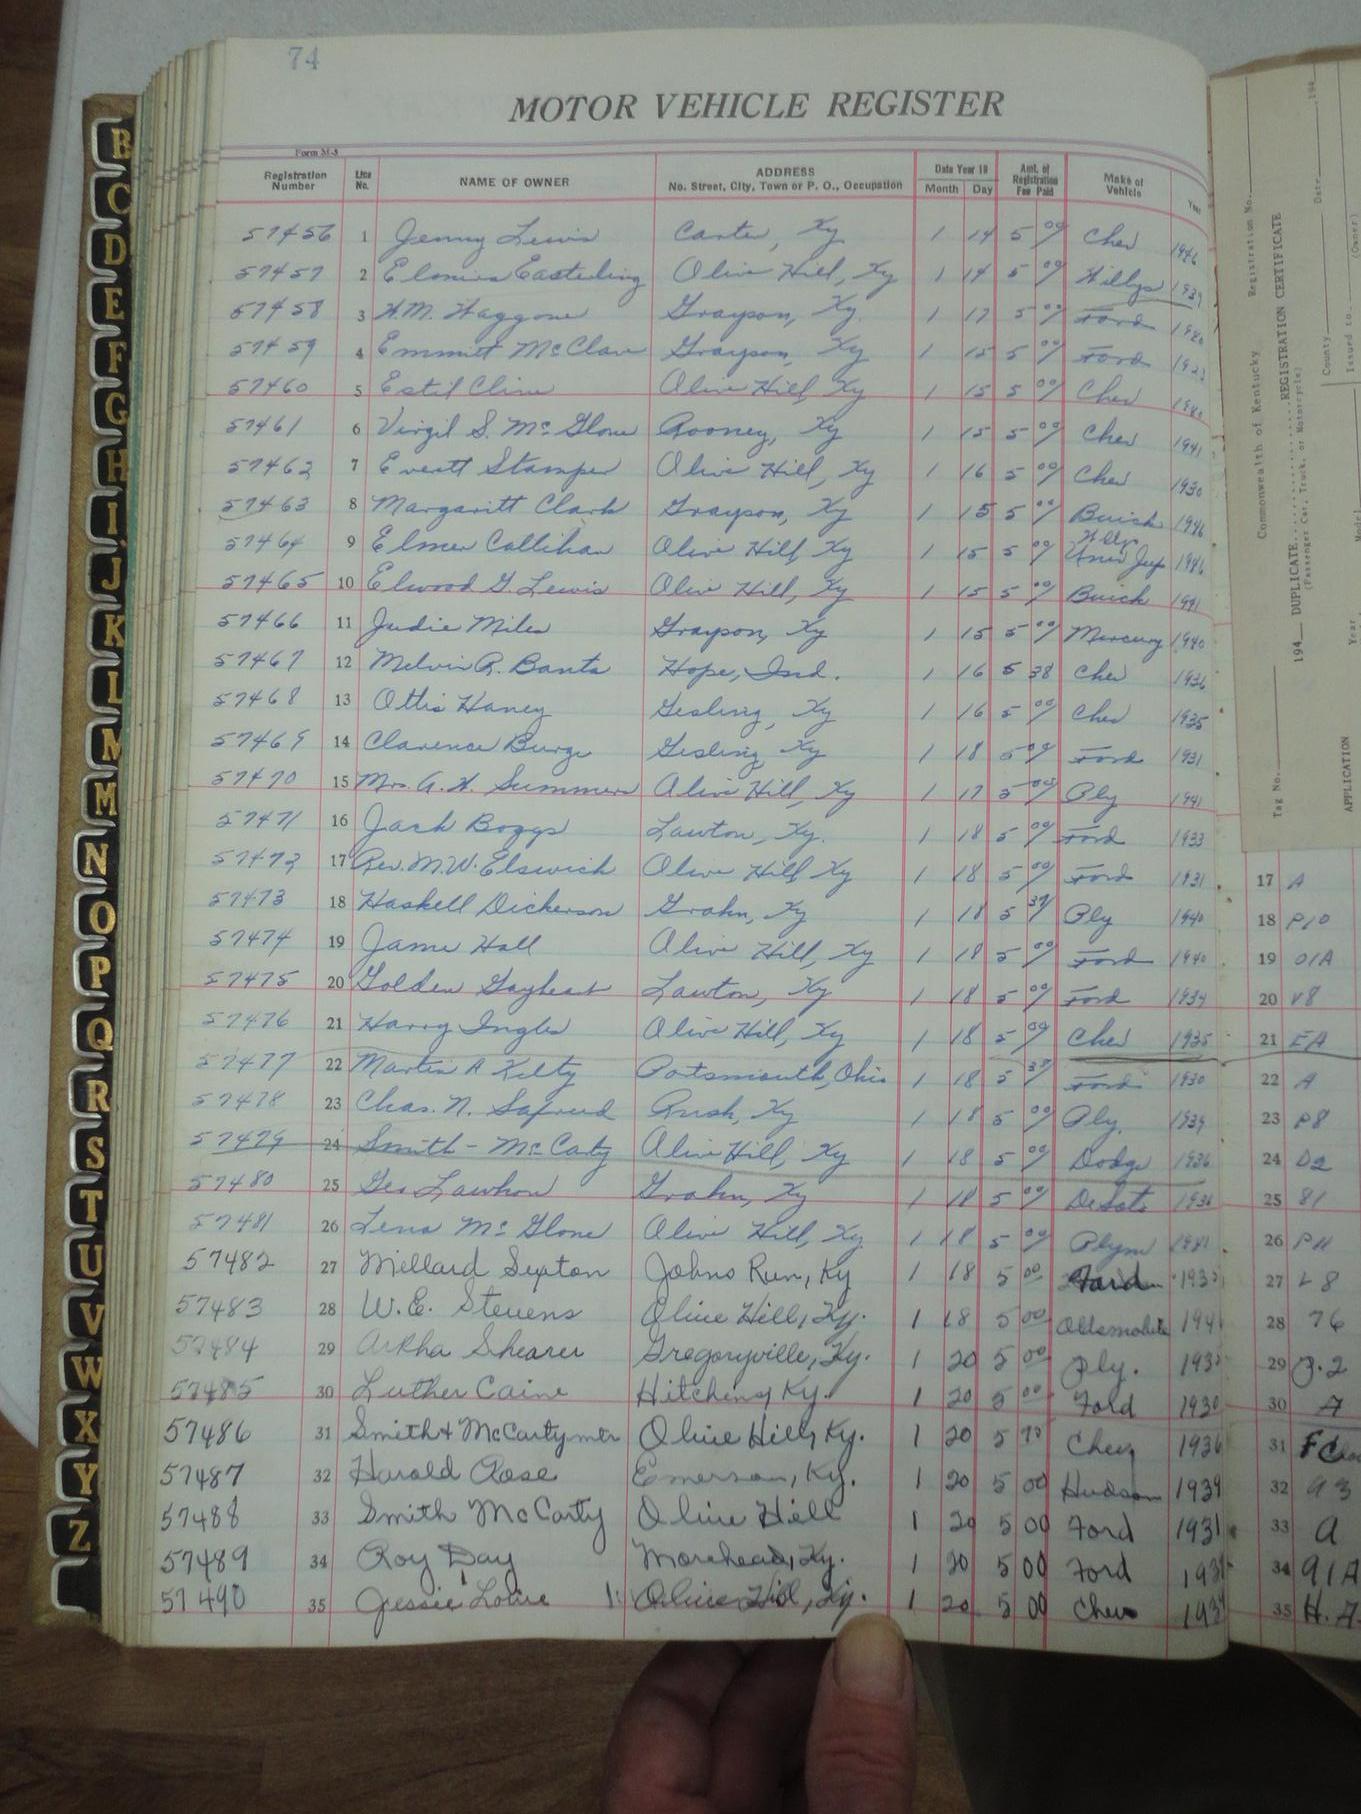 74
MOTOR VEHICLE REGISTER
Form M-8
Registration Number Line No. NAME OF OWNER ADDRESS No. Street, City, Town or P. O., Occupation Date Year 19 Month Day Amt. of Registration Fee Paid Make of Vehicle Year
57456 1 Jenny Lewis Carter, Ky 1 14 5 00 Chev 1946
57457 2 Easterling Olive Hill, Ky 1 14 5 00 Willys 1939
57458 3 Grayson, Ky. 1 17 5 00 Ford
57459 4 Emmitt Grayson, Ky 1 15 5 00 Ford
57460 5 Estil Cline Olive Hill, Ky 1 15 5 00 Chev
57461 6 Virgil S. McGlone Rooney, Ky 1 15 5 00 Chev 1941
57462 7 Everett Stamper Olive Hill, Ky 1 16 5 00 Chev 1930
57463 8 Margaritt Clark Grayson, Ky 1 15 5 00 Buick 1946
57464 9 Elmer Callihan Olive Hill, Ky 1 15 5 00 1946
57465 10 Elwood G. Lewis Olive Hill, Ky 1 15 5 00 Buick 1941
57466 11 Judie Miles Grayson, Ky 1 15 5 00 Mercury 1940
57467 12 Melvin R. Banta Hope, Ind. 1 16 5 38 Chev 1936
57468 13 Ottis Haney Gesling, Ky 1 16 5 00 Chev 1935
57469 14 Clarence Burge Gesling, Ky 1 18 5 00 Ford 1931
57470 15 Mrs. G. H. Summers Olive Hill, Ky 1 17 5 00 Ply 1941
57471 16 Jack Boggs Lawton, Ky. 1 18 5 00 Ford 1933
57472 17 Rev. M.W. Elswick Olive Hill, Ky 1 18 5 00 Ford 1931
57473 18 Haskell Dickerson Grahn, Ky 1 18 5 Ply 1940
57474 19 James Hall Olive Hill, Ky 1 18 5 00 Ford 1940
57475 20 Golden Gayheart Lawton, Ky 1 18 5 00 Ford 1934
57476 21 Harry Ingles Olive Hill, Ky 1 18 5 00 Chev 1935
57477 22 Martin A Kelty Portsmouth, Ohio 1 18 5 Ford 1930
57478 23 Chas. N. Rush, Ky 1 18 5 00 Ply. 1939
57479 24 Smith - McCarty Olive Hill, Ky 1 18 5 00 Dodge 1936
57480 25 Geo Lawhon Grahn, Ky 1 18 5 00 DeSoto 1936
57481 26 Lena McGlone Olive Hill, Ky 1 18 5 00 Plym 1941
57482 27 Millard Sexton Johns Run, Ky 1 18 5 00 Ford
57483 28 W.E. Stevens Olive Hill, Ky. 1 18 5 00 Oldsmobile
57484 29 Arkha Shearer Gregoryville, Ky. 1 20 5 00 Ply.
57485 30 Luther Caine Hitchins, Ky. 1 20 5 00 Ford 1930
57486 31 Smith & McCarty mtr Olive Hill, Ky. 1 20 5 Chev 1936
57487 32 Harold Rose Emerson, Ky. 1 20 5 00 Hudson 1939
57488 33 Smith McCarty Olive Hill 1 20 5 00 Ford 1931
57489 34 Roy Day Morehead, Ky. 1 20 5 00 Ford
57490 35 Jessie Lowe Olive Hill, Ky. 1 20 5 00 Chev
B
C
D
E
F
G
H
I
J
K
L
M
M
N
O
P
Q
R
S
T
U
V
W
X
Y
Z
Commonwealth of Kentucky Registration No.
194__ DUPLICATE REGISTRATION CERTIFICATE
(Passenger Car, Truck, or Motorcycle)
Tag No. County Date 194
Issued to (Owner)
APPLICATION Year Model
17 A
18 P10
19 01A
20 V8
21 EA
22 A
23 P8
24 D2
25 81
26 P11
27
28 76
29
30 A
31
32 93
33 A
34 91A
35 H.A